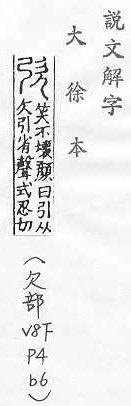 説文解字
大徐本
弞 笑不壞顏曰引从
欠引省聲式忍切
（欠部
V8下
P4
b6）